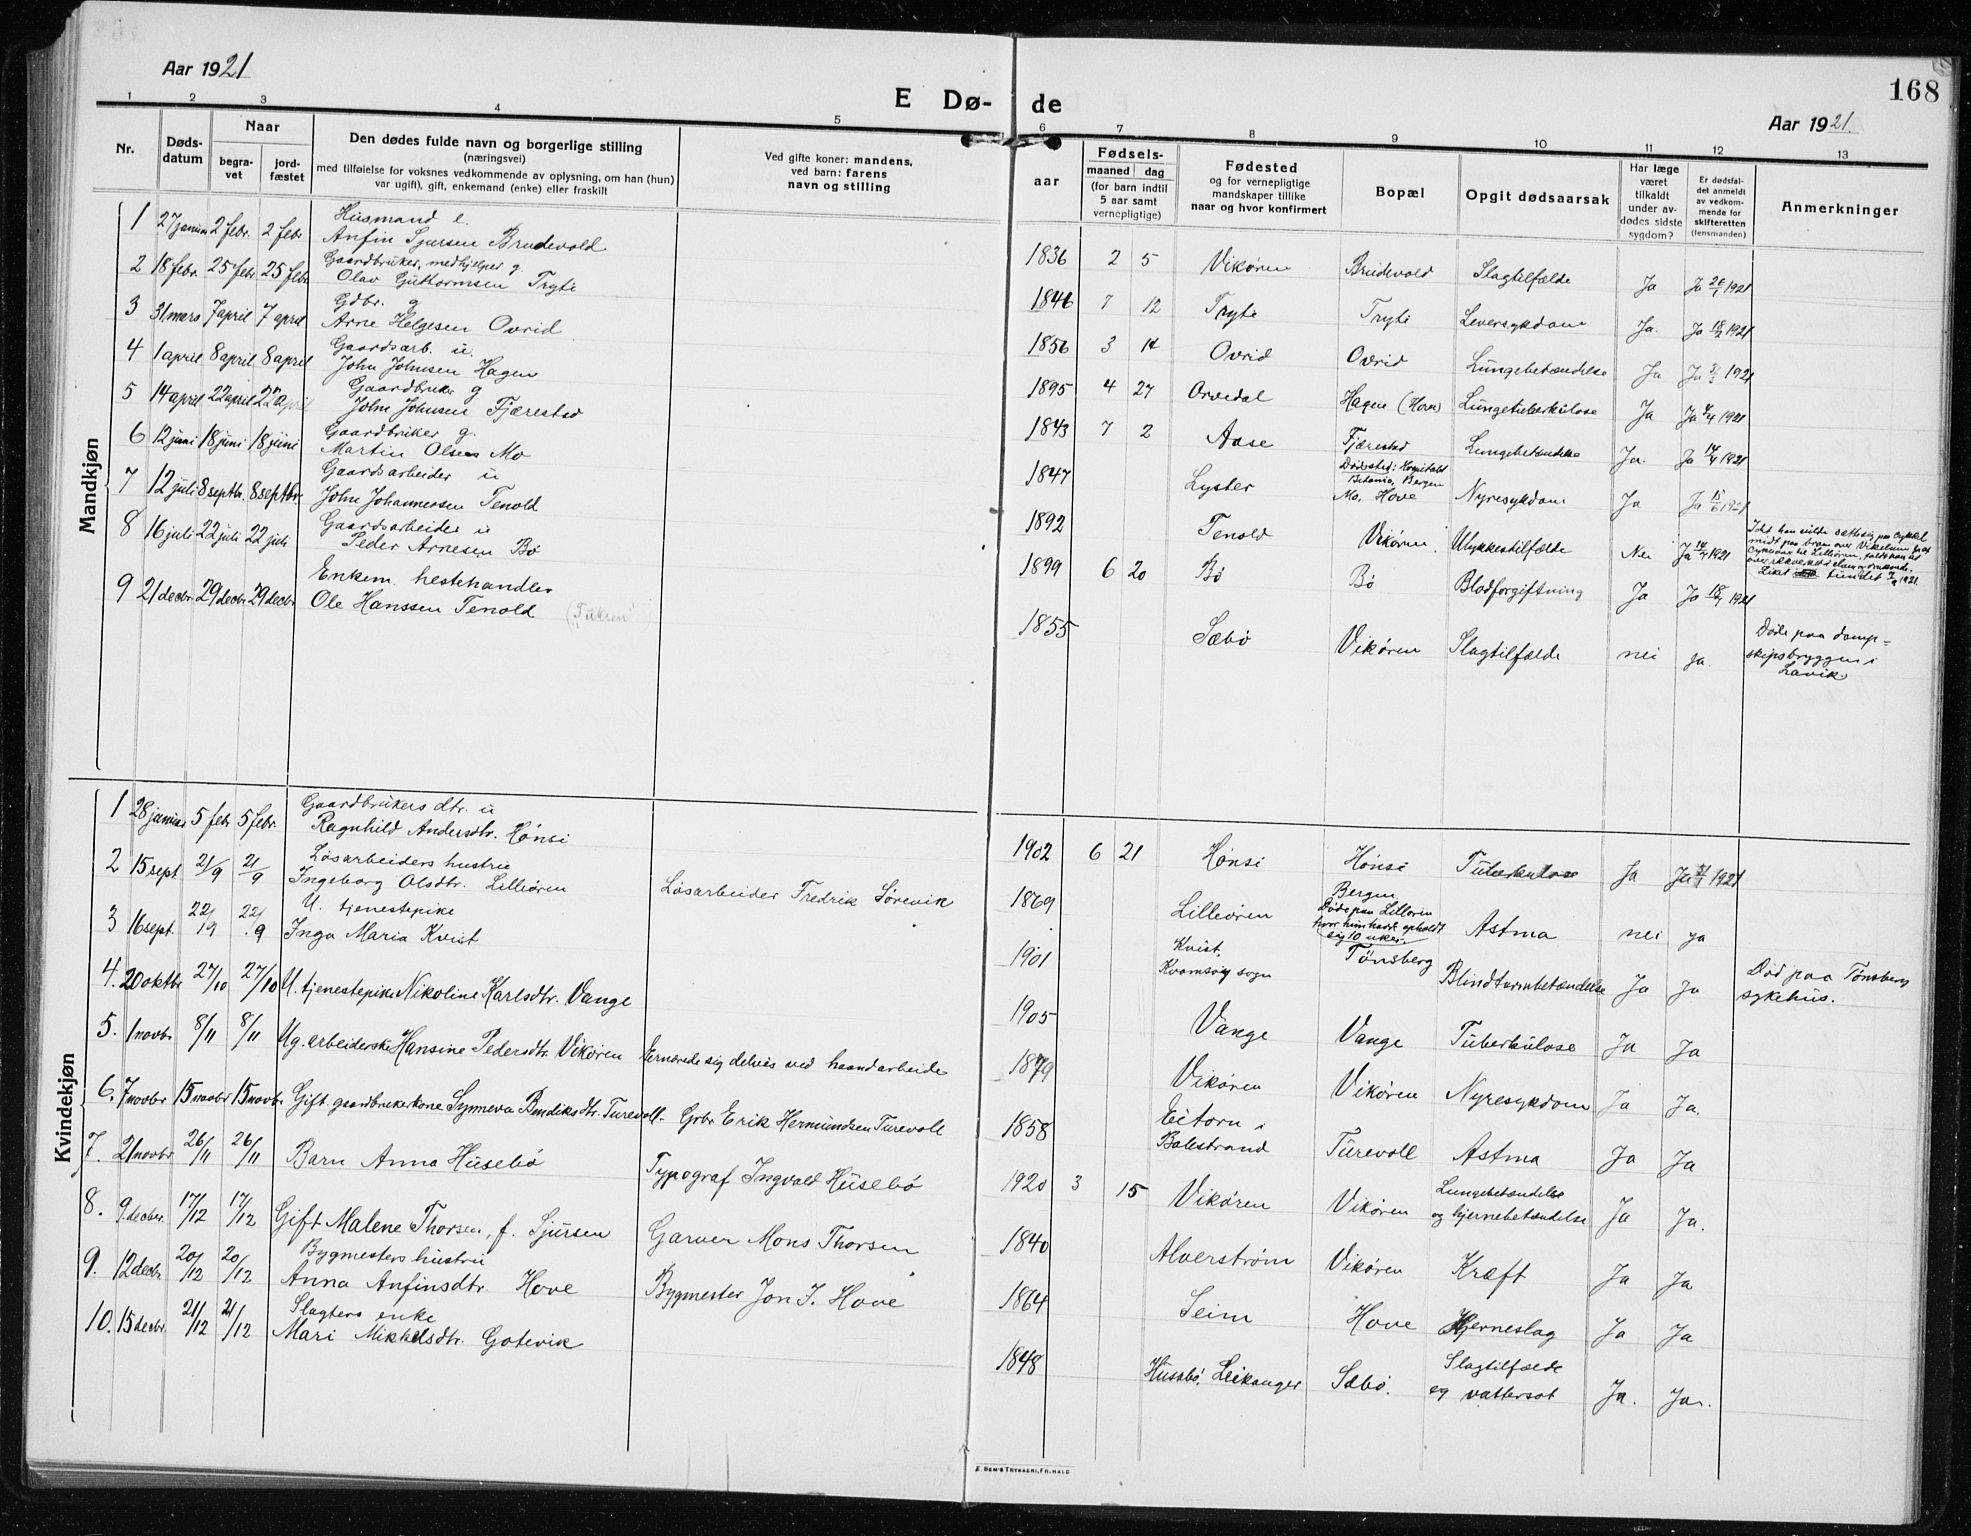 Aar 1921
E Dø-
de
168
Aar 1921.
1 2 3 4 5 6 7 8 9 10 11 12 13
Nr.
Døds-
datum
Naar
begra-
vet
jord-
fæstet
Den dødes fulde navn og borgerlige stilling
(næringsvei)
med tilføielse for voksnes vedkommende av oplysning, om han (hun)
var ugift), gift, enkemand (enke) eller fraskilt
Ved gifte koner: mandens,
ved barn: farens
navn og stilling
aar
Fødsels-
maaned dag
(for barn indtil
5 aar samt
vernepligtige)
Fødested
og for vernepligtige
mandskaper tillike
naar og hvor konfirmert
Bopæl
Opgit dødsaarsak
Har læge
været
tilkaldt
under av-
dødes sidste
sygdom?
Er dødsfal-
det anmeldt
av vedkom-
mende for
skifteretten
(lensmanden)
Anmerkninger
Mandkjøn
Husmand e.
1 27 januar 2 febr. 2 febr Anfin Sjursen Brudevold 1836 2 5 Vikøren Brudevold Slagtilfælde Ja Ja 26/1 1921
Gaardbruker, medhjelper g.
2 18 febr. 25 febr 25 febr Olav Guttormsen Tryti 1846 7 12 Tryti Tryti Leversykdom Ja. Ja 18/2 1921
Gdbr. g
3 31 mars 7 april 7 april Arne Helgesen Ovrid 1856 3 14 Ovrid Ovrid Lungebetændelse Ja Ja 1921
Gaardsarb. u.
4 1 april 8 april 8 april John Johnsen Hagen 1895 4 27 Orvedal Hagen (Hove) Lungetuberkulose Ja Ja 1921
Gaardbruker g
5 14 april 22 april 22 april John Johnsen Fjærestad 1843 7 2 Aase Fjærestad Lungebetændelse Ja. Ja 14/4 1921
Gaardbruker g.
6 12 juni 18 juni 18 juni Martin Olsen Mo 1847 Lyster
Dødssted: Hospitalet
Betania, Bergen
Mo, Hove Nyresykdom Ja Ja 15/6 1921
Gaardsarbeider u
7 12 juli 8 septbr. 8 septbr. John Johannessen Tenold 1892 Tenold Vikøren Ulykkestilfælde Nei Ja 14/7 1921
Gaardsarbeider u
8 16 juli 22 juli 22 juli Peder Arnesen Bø 1899 6 20 Bø Bø Blodforgiftning Ja Ja 18/7 1921
Enkem. hestehandler
9 21 decbr. 29 decbr 29 decbr. Ole Hanssen Tenold 1855 Sæbø Vikøren Slagtilfælde nei ja.
Døde paa damp-
skipsbryggen i
Lavik.
Kvindekjøn
Gaardbrukers dtr. u
1 28 januar 5 febr 5 febr. Ragnhild Andersdtr. Hønsi 1902 6 21 Hønsi Hønsi Tuberkulose Ja Ja 1921
Løsarbeiders hustru
2 15 sept 21/9 21/9 Ingeborg Olsdtr. Lilliøren Løsarbeider Fredrik Sørevik 1869 Lilliøren
Bergen
Døde paa Lilløren
hvor hun hadde opholdt
sig 10 uker.
Astma nei ja
U. tjenestepike
3 16 sept. 22/9 22/9 Inga Maria Kvist 1901 Kvist,
Kvamsøy sogn Tønsberg Blindtarmbetændelse Ja Ja
Død paa Tønsberg
sykehus.
4. 20 oktbr 27/10 27/10 U. tjenestepike Nikoline Karlsdtr. Vange 1905 Vange Vange Tuberkulose Ja Ja
5. 1 novbr 8/11 8/11 Ug. arbeiderske Hansine Pedersdtr. Vikøren Ernærede sig delvis ved haandarbeide 1879 Vikøren Vikøren Nyresykdom Ja Ja.
6. 7 novbr 15 novbr 15 novbr. Gift gaardbrukerkone Synneva Bendiksdtr. Turevoll. Grbr Erik Hermundsen Turevoll 1858 Eitorn i
Balestrand Turevoll Astma Ja Ja
7. 21 novbr 26/11 26/11 Barn Anna Husebø Typograf Ingvald Husebø 1920 3 15 Vikøren Vikøren
Lungebetændelse
og hjernebetændelse Ja Ja.
8. 9. decber. 17/12 17/12 Gift Malene Thorsen, f. Sjursen Garver Mons Thorsen 1840 Alverstrøm Vikøren Kræft Ja Ja
Bygmesters hustru
9. 12 decbr 20/12 20/12 Anna Anfinsdtr Hove Bygmester Jon J. Hove 1864 Seim Hove Hjerneslag Ja Ja
Slagters enke
10. 15 decbr 21/12 21/12 Mari Mikkelsdtr. Gotevik 1848 Husabø, Leikanger Sæbø.
Slagtilfælde
og vattersot Ja. Ja.
E. SEM'S TRYKKERI, FR.HALD